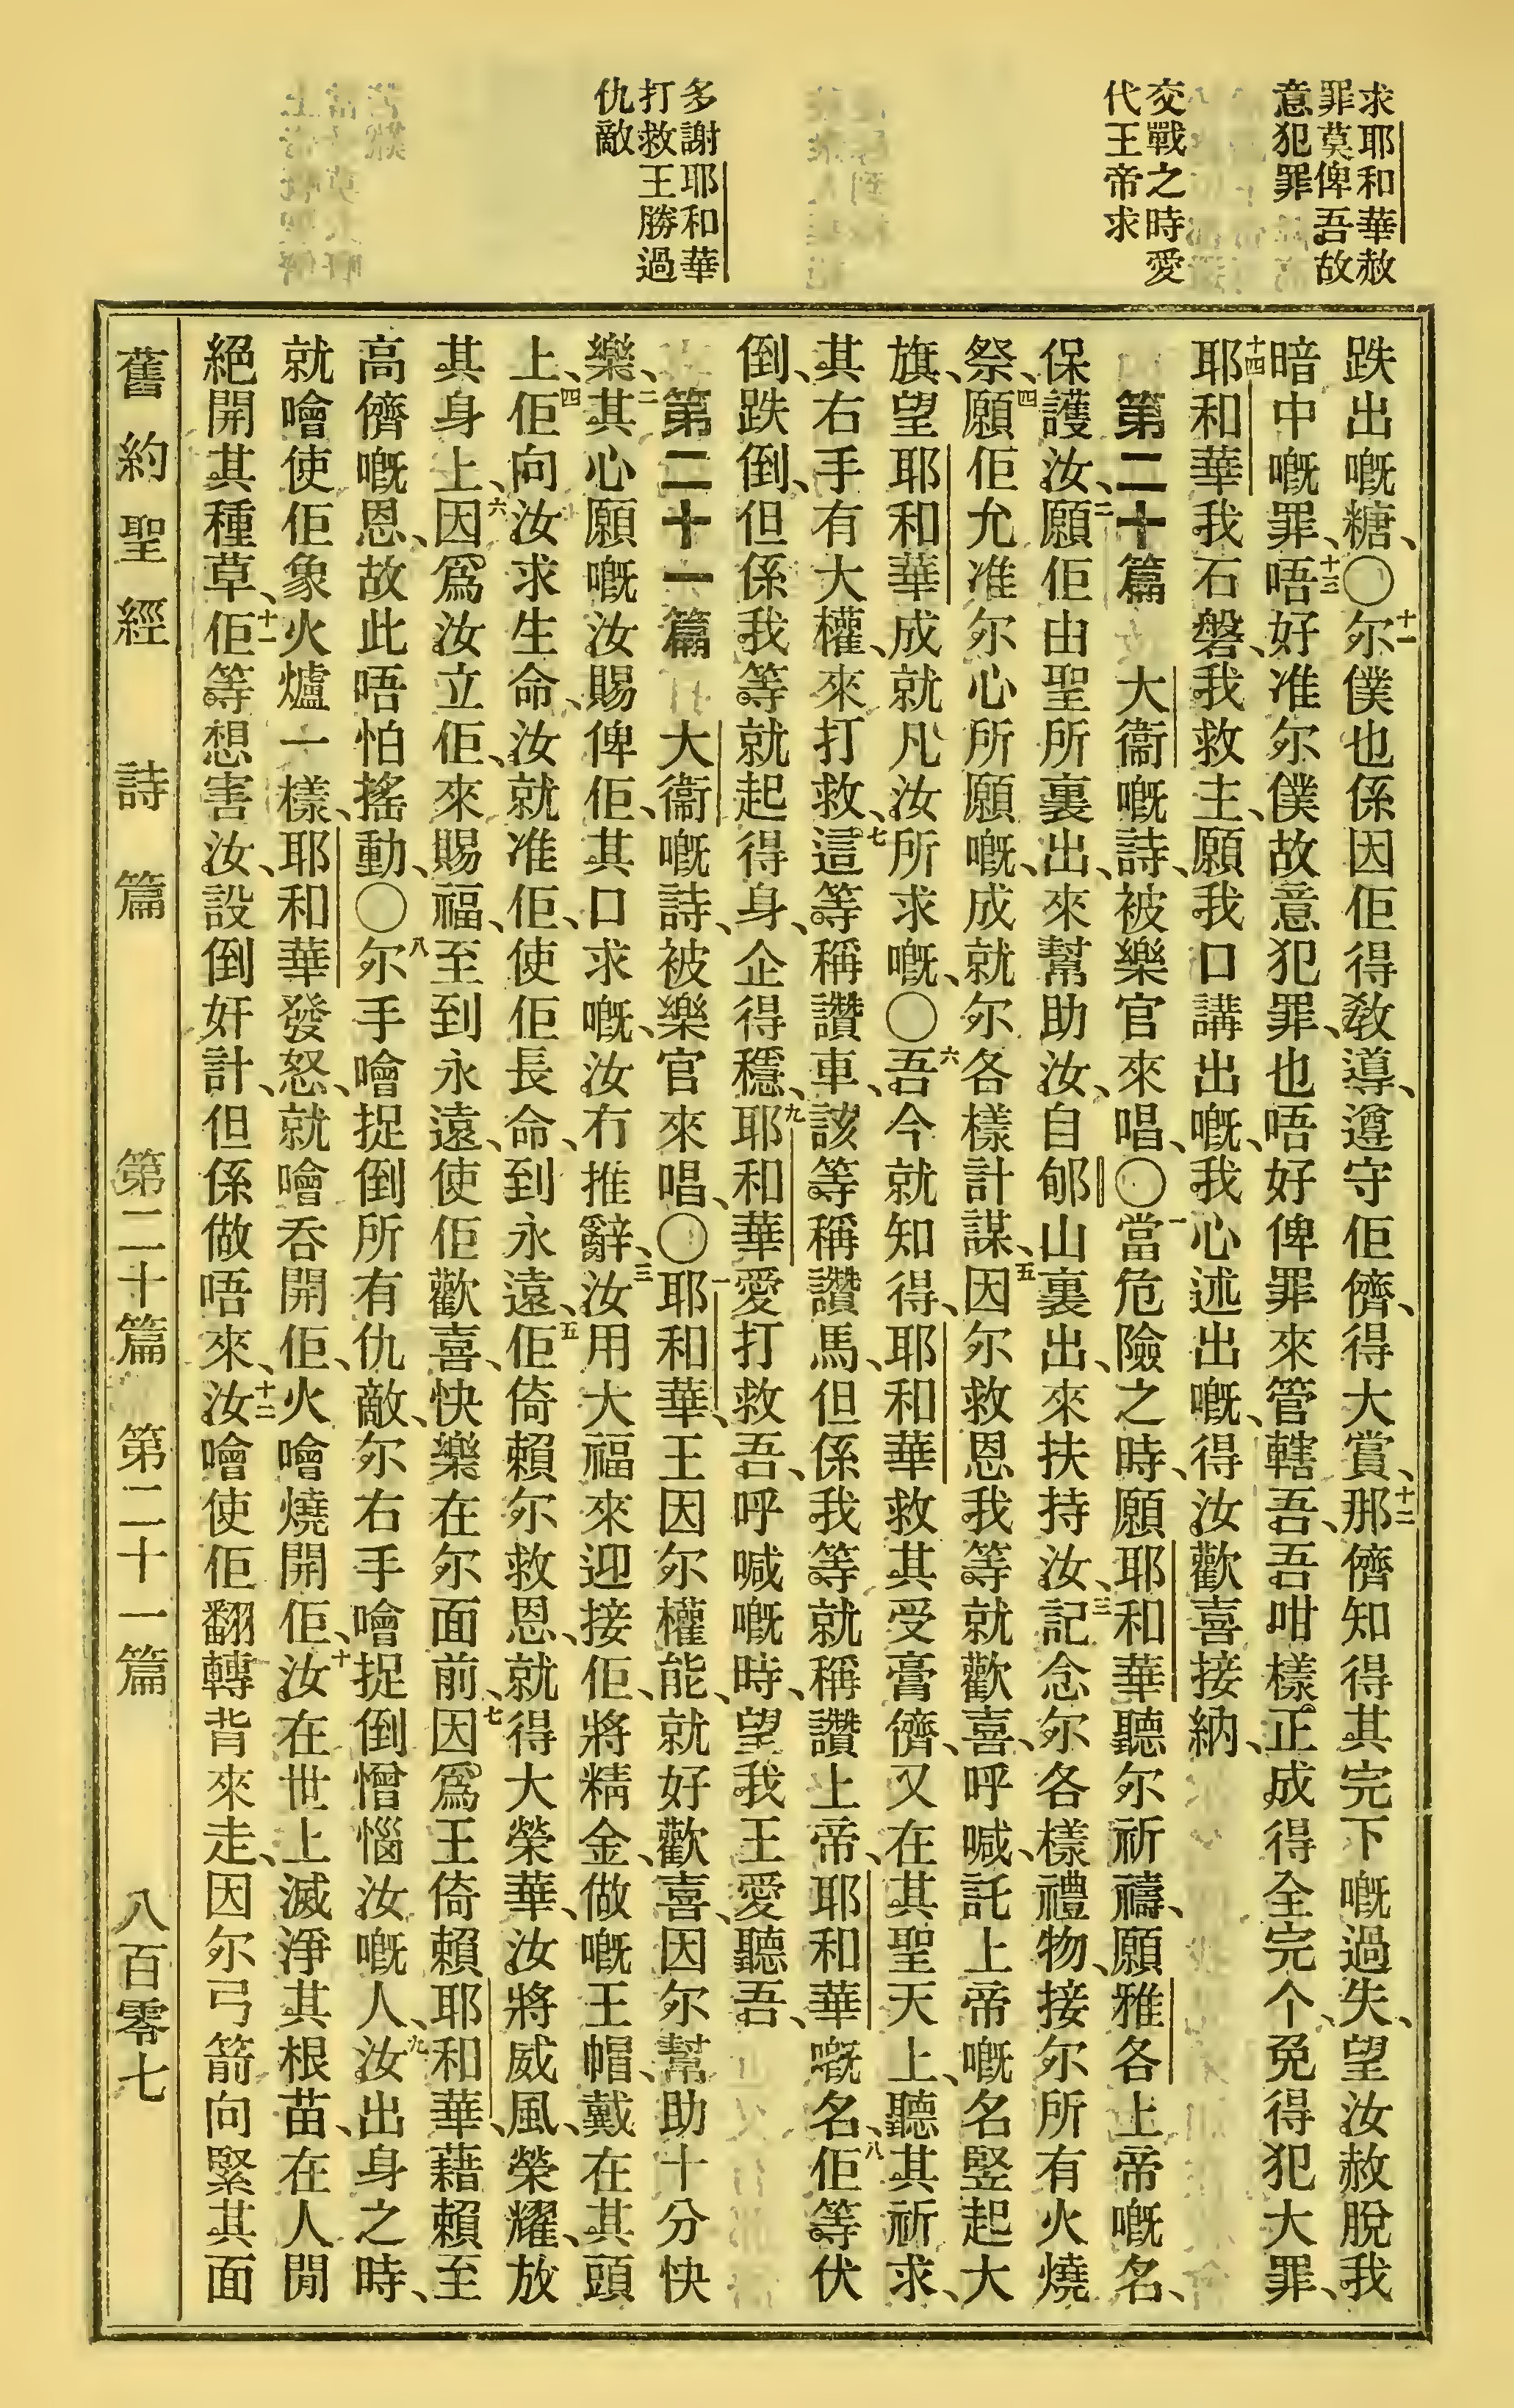 求耶和華赦
罪莫俾吾故
意犯罪
交戰之時愛
代王帝求
多謝耶和華
打救王勝過
仇敵
跌出嘅糖、〇十一尔僕也係因佢得教導、遵守佢儕、得大賞、十二那儕知得其完下嘅過失、望汝赦脫我
暗中嘅罪、十三唔好准尔僕故意犯罪、也唔好俾罪來管轄吾、吾咁樣正成得全完个、免得犯大罪、
十四耶和華我石磐、我救主、願我口講出嘅、我心述出嘅、得汝歡喜接納、
第二十篇 大衞嘅詩、被樂官來唱、〇一當危險之時、願耶和華聽尔祈禱、願雅各上帝嘅名、
保護汝、二願佢由聖所裏出、來幫助汝、自郇山裏出、來扶持汝、三記念尔各樣禮物、接尔所有火燒
祭、四願佢允准尔心所願嘅、成就尔各樣計謀、五因尔救恩我等就歡喜、呼喊、託上帝嘅名竪起大
旗、望耶和華成就凡汝所求嘅、〇六吾今就知得、耶和華救其受膏儕、又在其聖天上、聽其祈求、
其右手有大權、來打救、七這等稱讚車、該等稱讚馬、但係我等就稱讚上帝、耶和華嘅名、八佢等伏
倒、跌倒、但係我等就起得身、企得穩、九耶和華愛打救吾、呼喊嘅時、望我王愛聽吾、
第二十一篇 大衞嘅詩、被樂官來唱、〇一耶和華、王因尔權能、就好歡喜、因尔幫助十分快
樂、二其心願嘅汝賜俾佢、其口求嘅、汝冇推辭、三汝用大福來迎接佢、將精金、做嘅王帽、戴在其頭
上、四佢向汝求生命、汝就准佢、使佢長命、到永遠、五佢倚賴尔救恩、就得大榮華、汝將威風、榮耀、放
其身上、六因爲汝立佢、來賜福、至到永遠、使佢歡喜、快樂在尔面前、七因爲王倚賴耶和華、藉賴至
高儕嘅恩、故此唔怕搖動、〇八尔手噲捉倒所有仇敵、尔右手噲捉倒憎惱汝嘅人、九汝出身之時、
就噲使佢象火爐一樣、耶和華發怒、就噲呑開佢、火噲燒開佢、十汝在世上滅淨其根苗、在人閒
絕開其種草、十一佢等想害汝、設倒奸計、但係做唔來、十二汝噲使佢翻轉背來走、因尔弓箭向緊其面
舊約聖經 詩篇 第二十篇 第二十一篇 八百零七